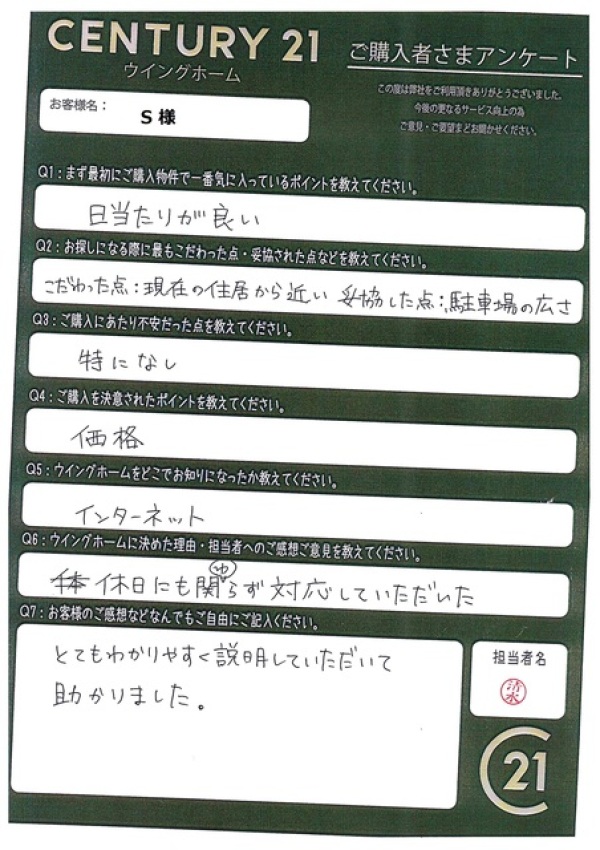 CENTURY 21
ウイングホーム
ご購入者さまアンケート
この度は弊社をご利用頂きありがとうございました。
今後の更なるサービス向上の為
ご意見・ご要望までお聞かせください。
お客様名:
S様
Q1:まず最初にご購入物件で一番気に入っているポイントを教えてください。
日当たりが良い
Q2:お探しになる際に最もこだわった点・妥協された点などを教えてください。
こだわった点:現在の住居から近い 妥協した点:駐車場の広さ
Q3:ご購入にあたり不安だった点を教えてください。
特になし
Q4:ご購入を決意されたポイントを教えてください。
価格
Q5:ウイングホームをどこでお知りになったか教えてください。
インターネット
Q6:ウイングホームに決めた理由・担当者へのご感想ご意見を教えてください。
休日にも関わらず対応していただいた
Q7:お客様のご感想などなんでもご自由にご記入ください。
とてもわかりやすく説明していただいて
助かりました。
担当者名
清水
C21